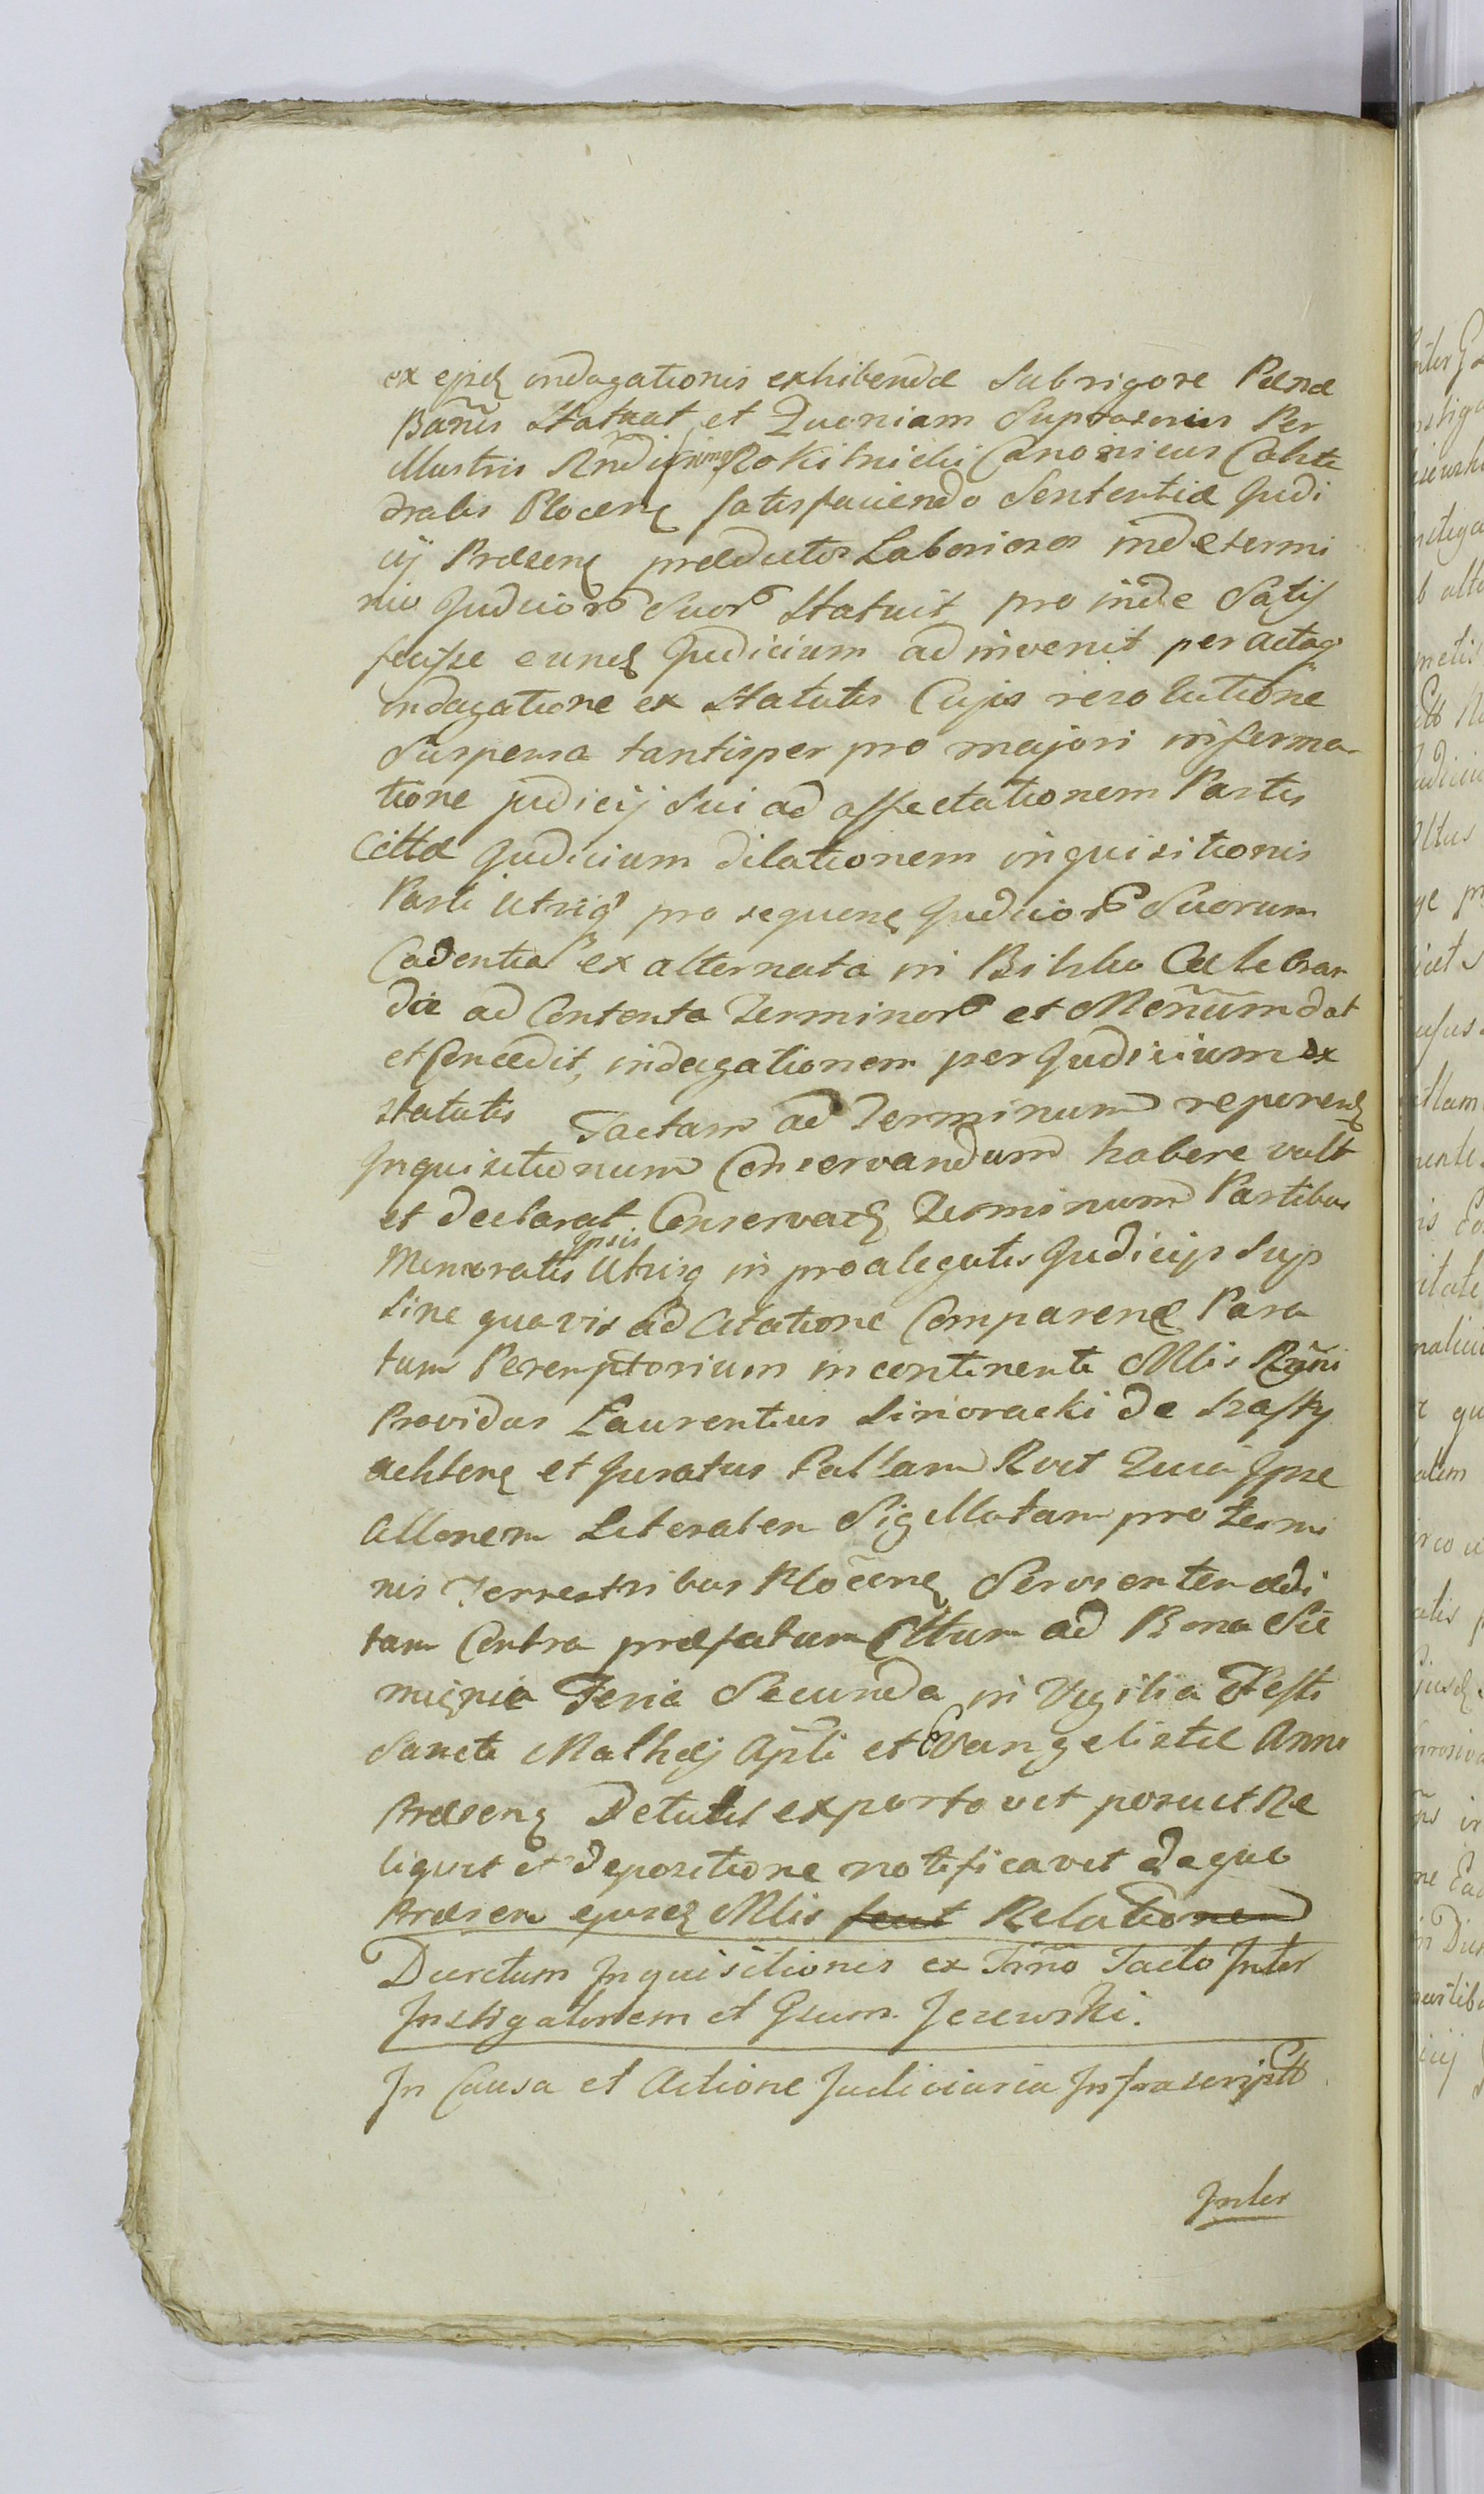 ex ejusd indagationis exhibendæ Sub rigore Pænæ
Bañis Statuat et Quoniam Supraserius Per
illustris Rndissimus Rokitnicki Canonicus Cathe
dralis Plocens satisfaciendo Sententiæ Judi
cij Præsens prædictos Laboriosos in determi
nio Judicior Suor Statuit pro inde Satis
fecisse eund Judicium ad invenit peractaq
indagatione ex Statutis Cujus resolutione
Suspensa tantisper pro majori informa
tione judicij Sui ad affectationem Partis
Cittæ Judicium dilationem inquisitionis
Parti Utriq pro sequens Judicior Suorum
Cadentia ex alternata in Bilsko Celebran
dor ad Contenta Terminor et Meñium dat
et Concedit, indagationem per Judicium ex
statutis Factam ad Terminum reporend
Inquisitionum Conservandum habere vult
et declarat Conservatq Terminum Partibus
Memoratis Ipsis Utrisq in pro alegatis Judicijs Sujs
Sine quavis ad Citatione Comparend Para
tum Peremptorium in continenti Mlis Rgñi
Providus Laurentius Sinoracki de
et Juratus Pallam Rvit Quia Ipse
Allonem Literalem Sigillatam pro Termi
nis Terrestribus Plocens Servientem ædi
tam Contra præfatum Cittum ad Bona Sie
Feria Secunda in Vigilia Festi
Sancti Mathej Apli et Evangelistæ Anno
Præsens Detulit exportavit posuit Re
liquit et depositione notificavit deque
Præsens ejusd Mlis feut Relationem
Decretum Inquisitionis ex Trño Tacto Inter
Instigatorem et Gsum Jezewski.
In Causa et Actione Judiciaria Infrascriptt
Inter